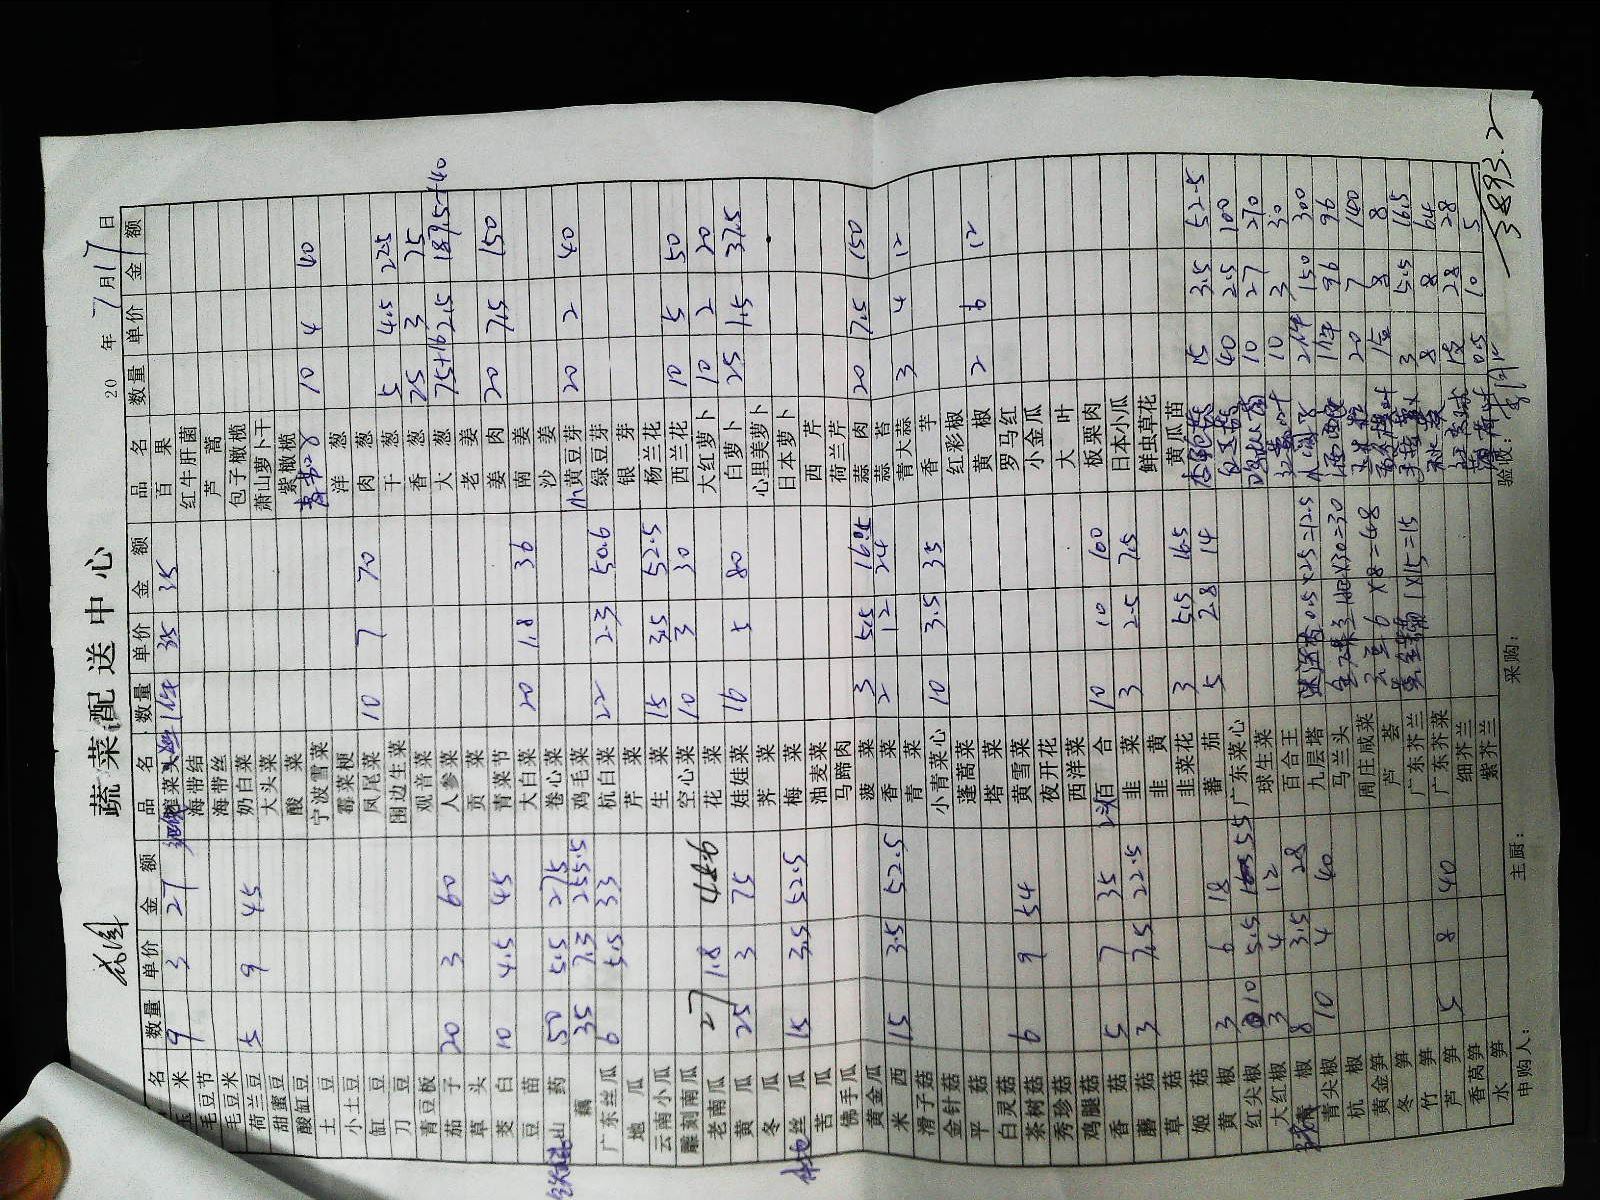 蔬菜配送中心
20 年 7 月 17 日
品名 数量 单价 金额 品名 数量 单价 金额 品名 数量 单价 金额
玉米 9 3 27
毛豆节
毛豆米
荷兰豆 5 9 45
甜蜜豆
酸缸豆
土豆
小土豆
缸豆
刀豆
青豆板
茄子 20 3 60
草头
茭白 10 4.5 45
豆苗
山药 50 5.5 275
藕 35 7.3 255.5
广东丝瓜 6 5.5 33
地瓜
云南小瓜
雕刻南瓜
老南瓜 27 1.8 48.6
黄瓜 25 3 75
冬瓜
丝瓜 15 3.5 52.5
苦瓜
佛手瓜
黄金瓜
米西 15 3.5 52.5
滑子菇
金针菇
平菇
白灵菇
茶树菇 6 9 54
秀珍菇
鸡腿菇
香菇 5 7 35
蘑菇 3 7.5 22.5
草菇
姬菇
黄椒 3 6 18
红尖椒 10 5.5 55
大红椒 3 4 12
椒 8 3.5 28
青尖椒 10 4 40
杭椒
黄金笋
冬笋
竹笋
芦笋 5 8 40
香莴笋
水笋
榨菜 35 35
海带结
海带丝
奶白菜
大头菜
酸菜
宁波雪菜
霉菜梗
凤尾菜 10 7 70
围边生菜
观音菜
人参菜
贡菜
青菜节
大白菜 20 1.8 36
卷心菜
鸡毛菜
杭白菜 22 2.3 50.6
芹菜
生菜 15 3.5 52.5
空心菜 10 3 30
花菜
娃娃菜 16 5 80
荠菜
梅菜
油麦菜
马蹄肉
菠菜 3 5.5 16.5
香菜 2 12 24
青菜
小青菜心 10 3.5 35
蓬蒿菜
塔菜
黄雪菜
夜开花
西洋菜
百合 10 10 100
韭菜 3 2.5 7.5
韭黄
韭菜花 3 5.5 16.5
蕃茄 5 2.8 14
广东菜心
球生菜
百合王
九层塔
马兰头
周庄咸菜
芦荟
广东芥兰
广东芥菜
细芥兰
紫芥兰
百果
红牛肝菌
芦蒿
包子橄榄
萧山萝卜干
紫橄榄
10 4 40
洋葱
肉葱
干葱 5 4.5 22.5
香葱 25 3 75
大葱 75+16 2.5 187.5+40
老姜
姜肉 20 7.5 150
南姜
沙姜
小黄豆芽 20 2 40
绿豆芽
银芽
杨兰花
西兰花 10 5 50
大红萝卜 10 2 20
白萝卜 25 1.5 37.5
心里美萝卜
日本萝卜
西芹
荷兰芹
蒜肉 20 7.5 150
蒜苔
青大蒜 3 4 12
香芋
红彩椒
黄椒 2 6 12
罗马红
小金瓜
大叶
板栗肉
日本小瓜
鲜虫草花
黄瓜苗
杏鲍菇 15 3.5 52.5
40 2.5 100
10 27 270
10 3 30
2件 150 300
1件 96 96
玉米粒 20 7 140
8 8
3 5.5 16.5
8 8 64
28 28
0.5 10 5
申购人： 主厨： 采购： 验收：
3893.2